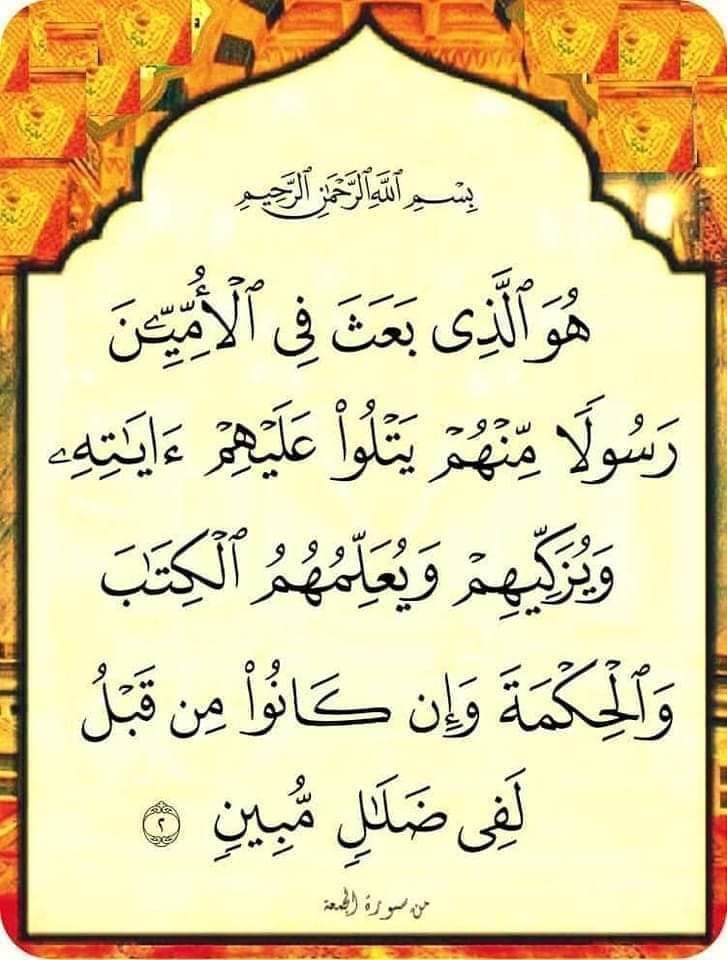 بِسْمِ ٱللَّهِ ٱلرَّحْمَٰنِ ٱلرَّحِيمِ
هُوَ ٱلَّذِى بَعَثَ فِى ٱلْأُمِّيِّـۧنَ
رَسُولًا مِّنْهُمْ يَتْلُوا۟ عَلَيْهِمْ ءَايَٰتِهِۦ
وَيُزَكِّيهِمْ وَيُعَلِّمُهُمُ ٱلْكِتَٰبَ
وَٱلْحِكْمَةَ وَإِن كَانُوا۟ مِن قَبْلُ
لَفِى ضَلَٰلٍ مُّبِينٍ ٢
من سورة الجمعة